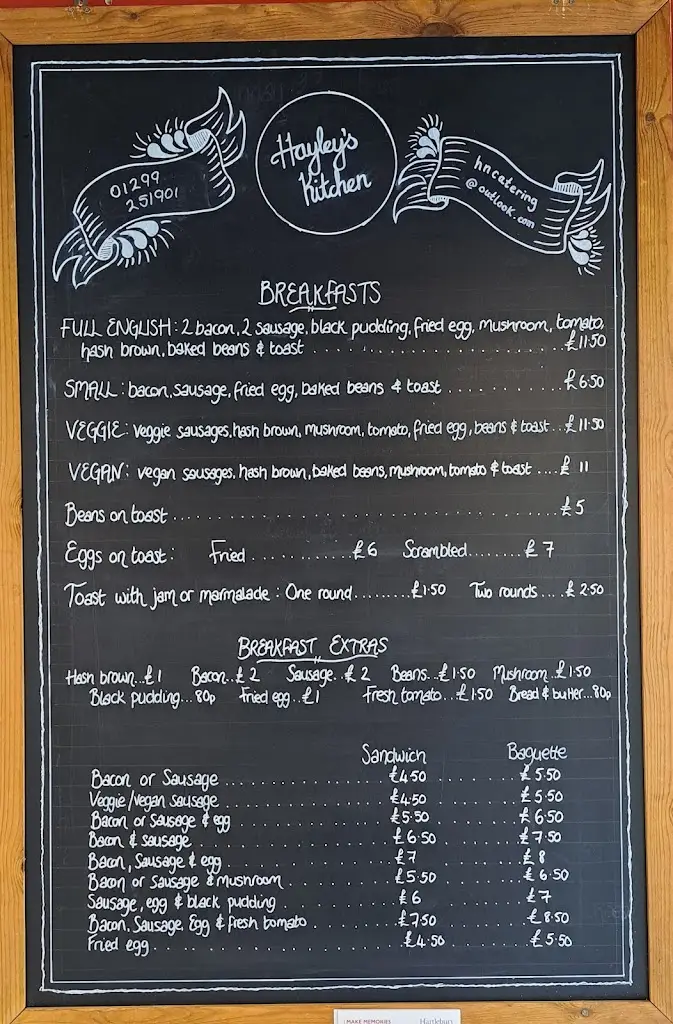 01299
251901
Hayley's
Kitchen
hncatering
@outlook.com
BREAKFASTS
FULL ENGLISH: 2 bacon, 2 sausage, black pudding, fried egg, mushroom, tomato,
hash brown, baked beans & toast . . . . . . . . . . . . . . . . . . . . . £11·50
SMALL: bacon, sausage, fried egg, baked beans & toast . . . . . . . . . . £6·50
VEGGIE: veggie sausages, hash brown, mushroom, tomato, fried egg, beans & toast...£11·50
VEGAN: vegan sausages, hash brown, baked beans, mushroom, tomato & toast ....£ 11
Beans on toast . . . . . . . . . . . . . . . . . . . . . . . . . . . . . . £5
Eggs on toast: Fried . . . . . . . . . . £6 Scrambled........£7
Toast with jam or marmalade: One round.........£1·50 Two rounds....£2·50
BREAKFAST EXTRAS
Hash brown...£1 Bacon..£2 Sausage..£2 Beans...£1·50 Mushroom..£1·50
Black pudding...80p Fried egg..£1 Fresh tomato...£1·50 Bread & butter...80p
Sandwich Baguette
Bacon or Sausage . . . . . . . . . . £4·50 . . . . . . £5·50
Veggie/vegan sausage . . . . . . . . . . £4·50 . . . . . . £5·50
Bacon or Sausage & egg . . . . . . . . . £5·50 . . . . . . £6·50
Bacon & sausage . . . . . . . . . . . . £6·50 . . . . . . £7·50
Bacon, Sausage & egg . . . . . . . . . . £7 . . . . . . . £8
Bacon or Sausage & mushroom . . . . . . . £5·50 . . . . . . £6·50
Sausage, egg & black pudding . . . . . . . £6 . . . . . . . £7
Bacon, Sausage, Egg & fresh tomato . . . . . £7·50 . . . . . . £8·50
Fried egg . . . . . . . . . . . . . . . £4·50 . . . . . . £5·50
MAKE MEMORIES